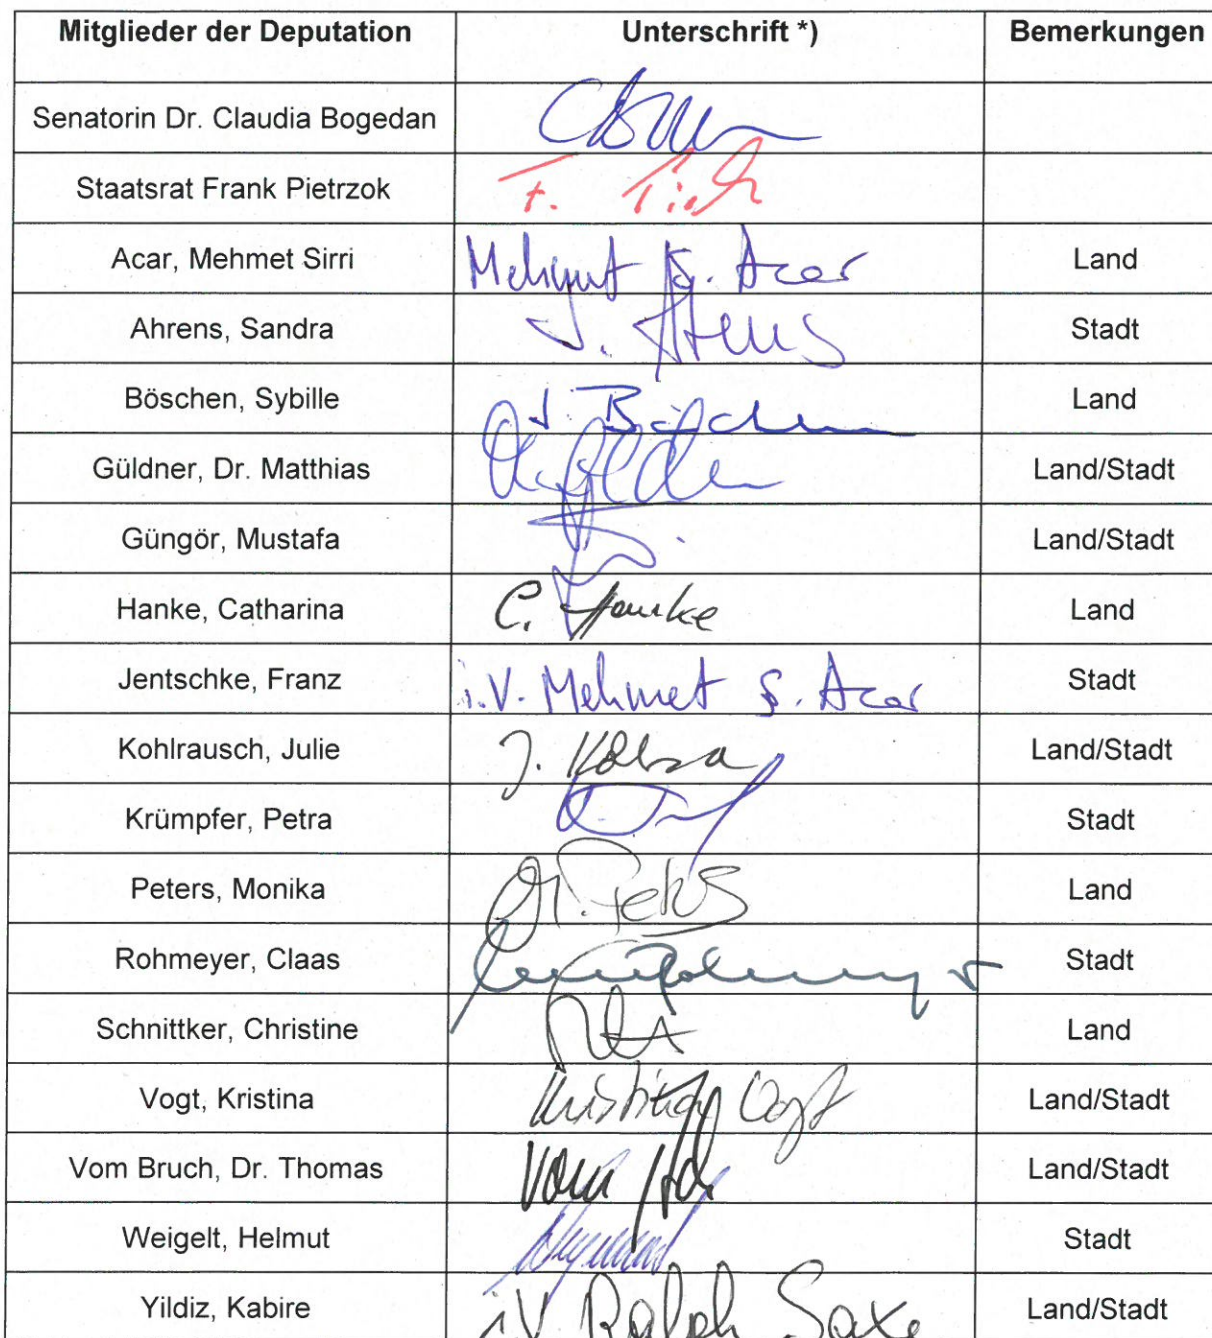 Mitglieder der Deputation Unterschrift *) Bemerkungen
Senatorin Dr. Claudia Bogedan
Staatsrat Frank Pietrzok F.
Acar, Mehmet Sirri Mehmet S. Acar Land
Ahrens, Sandra S. Ahrens Stadt
Böschen, Sybille S. Böschen Land
Güldner, Dr. Matthias Land/Stadt
Güngör, Mustafa Land/Stadt
Hanke, Catharina C. Hanke Land
Jentschke, Franz i.V. Mehmet S. Acar Stadt
Kohlrausch, Julie J. Land/Stadt
Krümpfer, Petra Stadt
Peters, Monika M. Peters Land
Rohmeyer, Claas Stadt
Schnittker, Christine Land
Vogt, Kristina Kristina Vogt Land/Stadt
Vom Bruch, Dr. Thomas vom Land/Stadt
Weigelt, Helmut Stadt
Yildiz, Kabire i.V. Ralph Saxe Land/Stadt